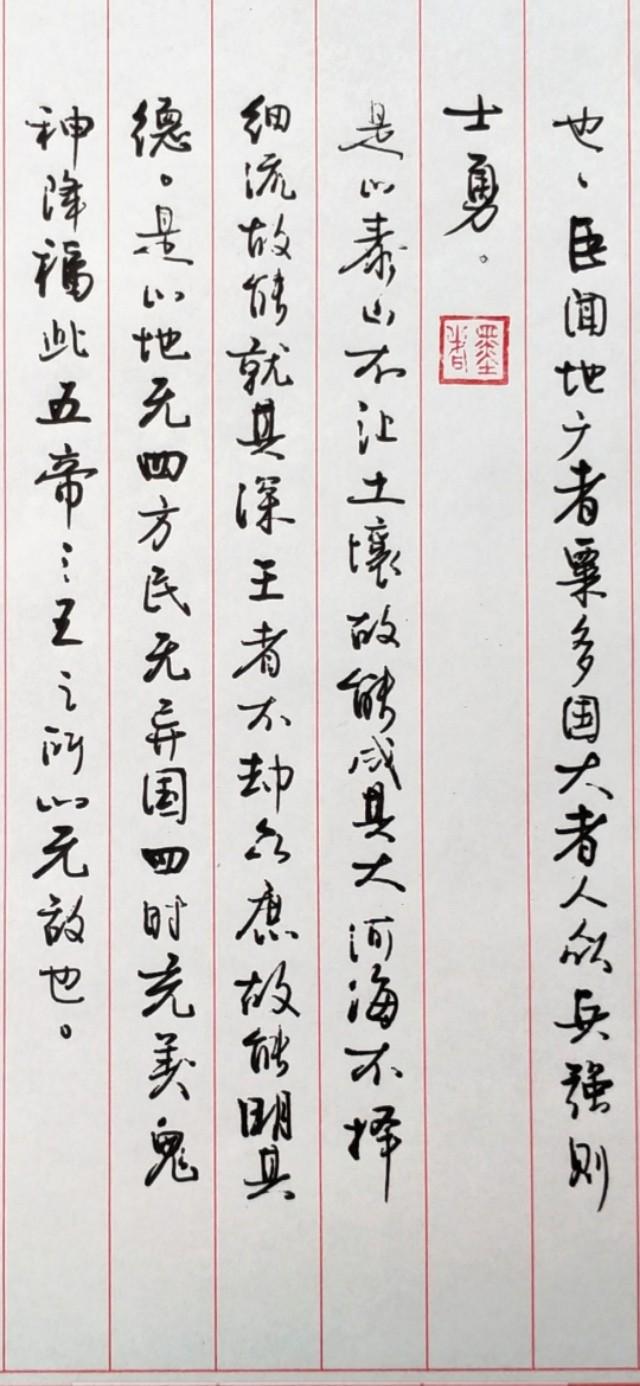 也、臣闻地广者粟多国大者人众兵强则
士勇。
是以泰山不让土壤故能成其大河海不择
细流故能就其深王者不却众庶故能明其
德。是以地无四方民无异国四时充美鬼
神降福此五帝三王之所以无敌也。